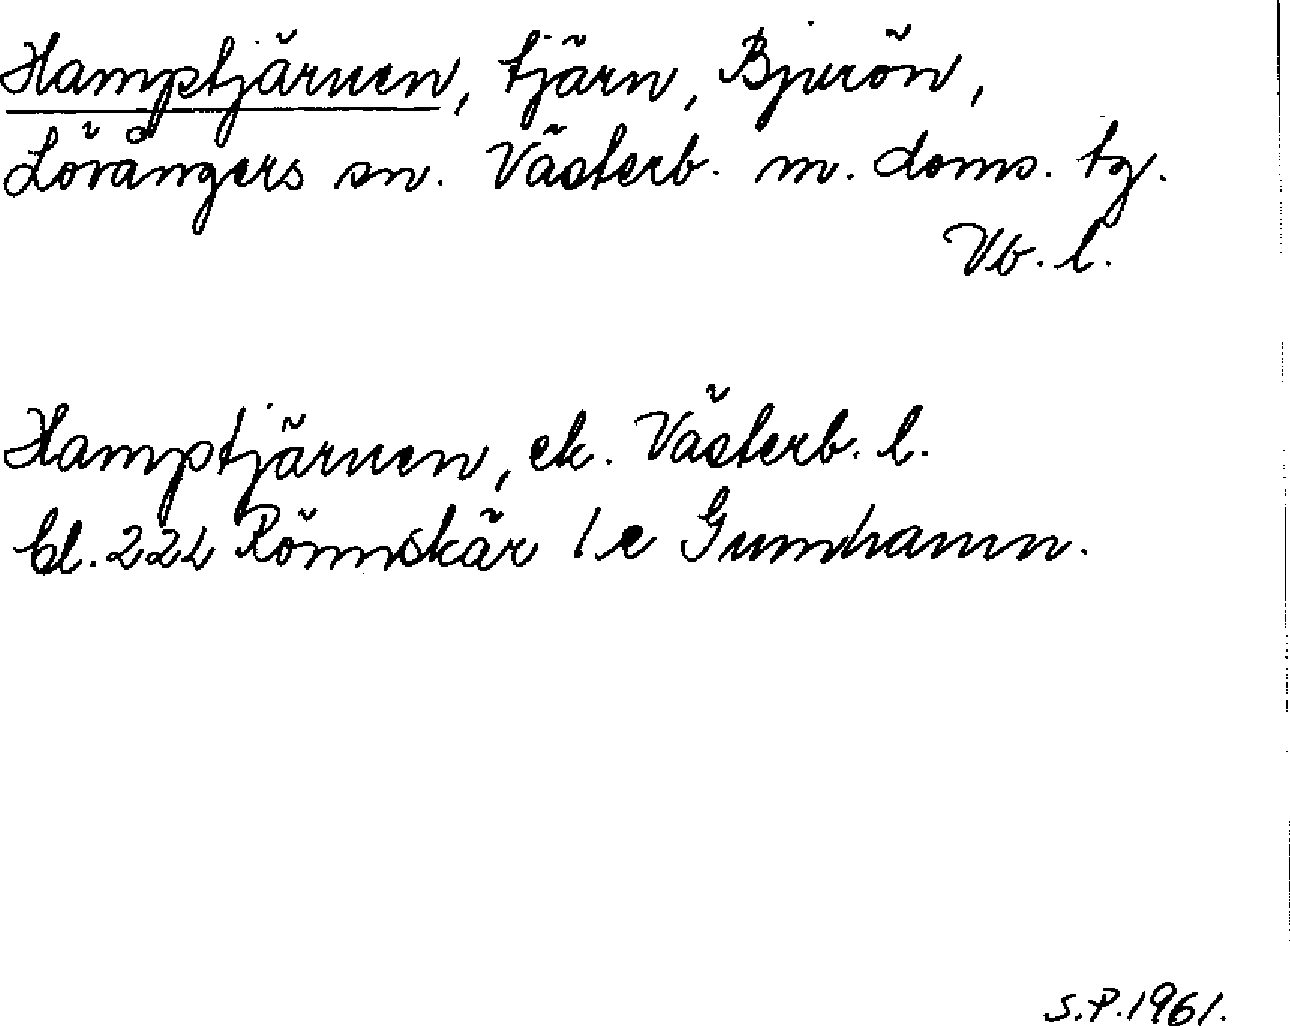 Hamptjärnen, tjärn, Bjurön,
Lövångers sn. Västerb. m. doms. tg.
Vb. l.
Hamptjärnen, ek. Västerb. l.
bl. 222 Rönnskär 1 e Gumhamn.
S.P. 1961.